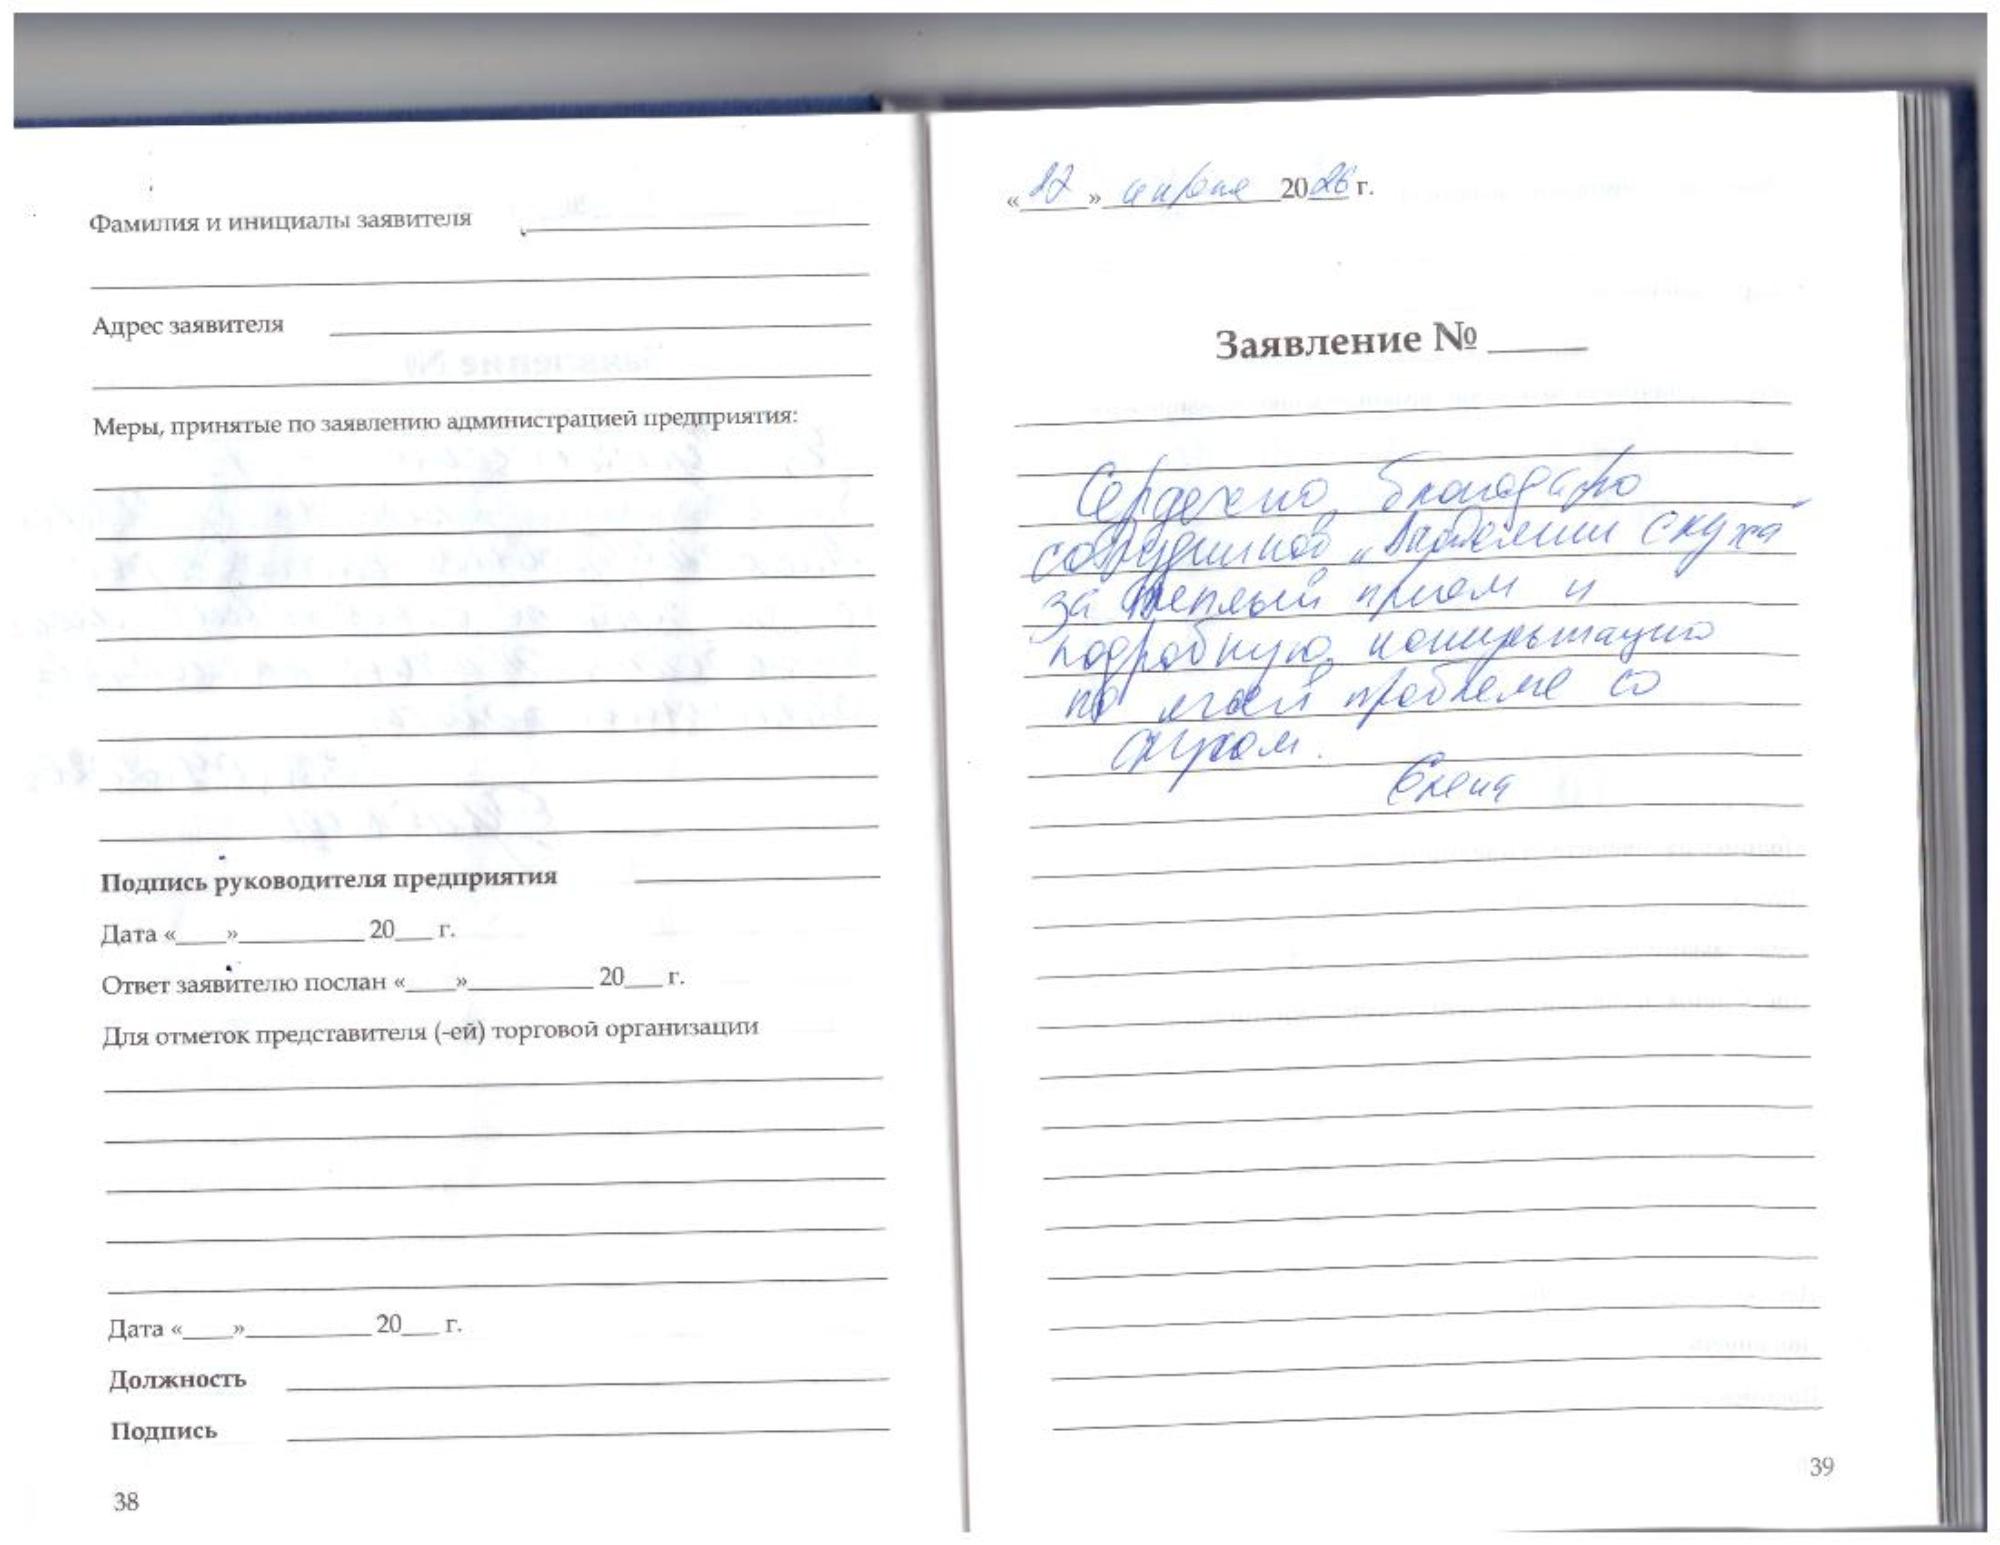 Фамилия и инициалы заявителя
Адрес заявителя
Меры, принятые по заявлению администрацией предприятия:
Подпись руководителя предприятия
Дата «____»__________ 20___ г.
Ответ заявителю послан «____»__________ 20___ г.
Для отметок представителя (-ей) торговой организации
Дата «____»__________ 20___ г.
Должность
Подпись
38
« » апреля 2026 г.
Заявление № _____
Сердечно благодарю
сотрудников „Академии слуха"
за теплый прием и
подробную консультацию
по моей проблеме со
слухом.
Елена
39